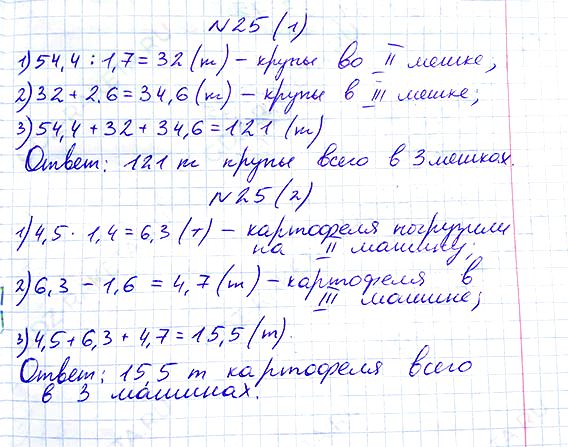 N25 (1)
1) 54,4 : 1,7 = 32 (т) – крупы во II мешке;
2) 32 + 2,6 = 34,6 (т) – крупы в III мешке;
3) 54,4 + 32 + 34,6 = 121 (т)
Ответ: 121 т крупы всего в 3 мешках.
N25 (2)
1) 4,5 · 1,4 = 6,3 (т) – картофеля погрузили
на II машину;
2) 6,3 – 1,6 = 4,7 (т) – картофеля в
III машине;
3) 4,5 + 6,3 + 4,7 = 15,5 (т).
Ответ: 15,5 т картофеля всего
в 3 машинах.